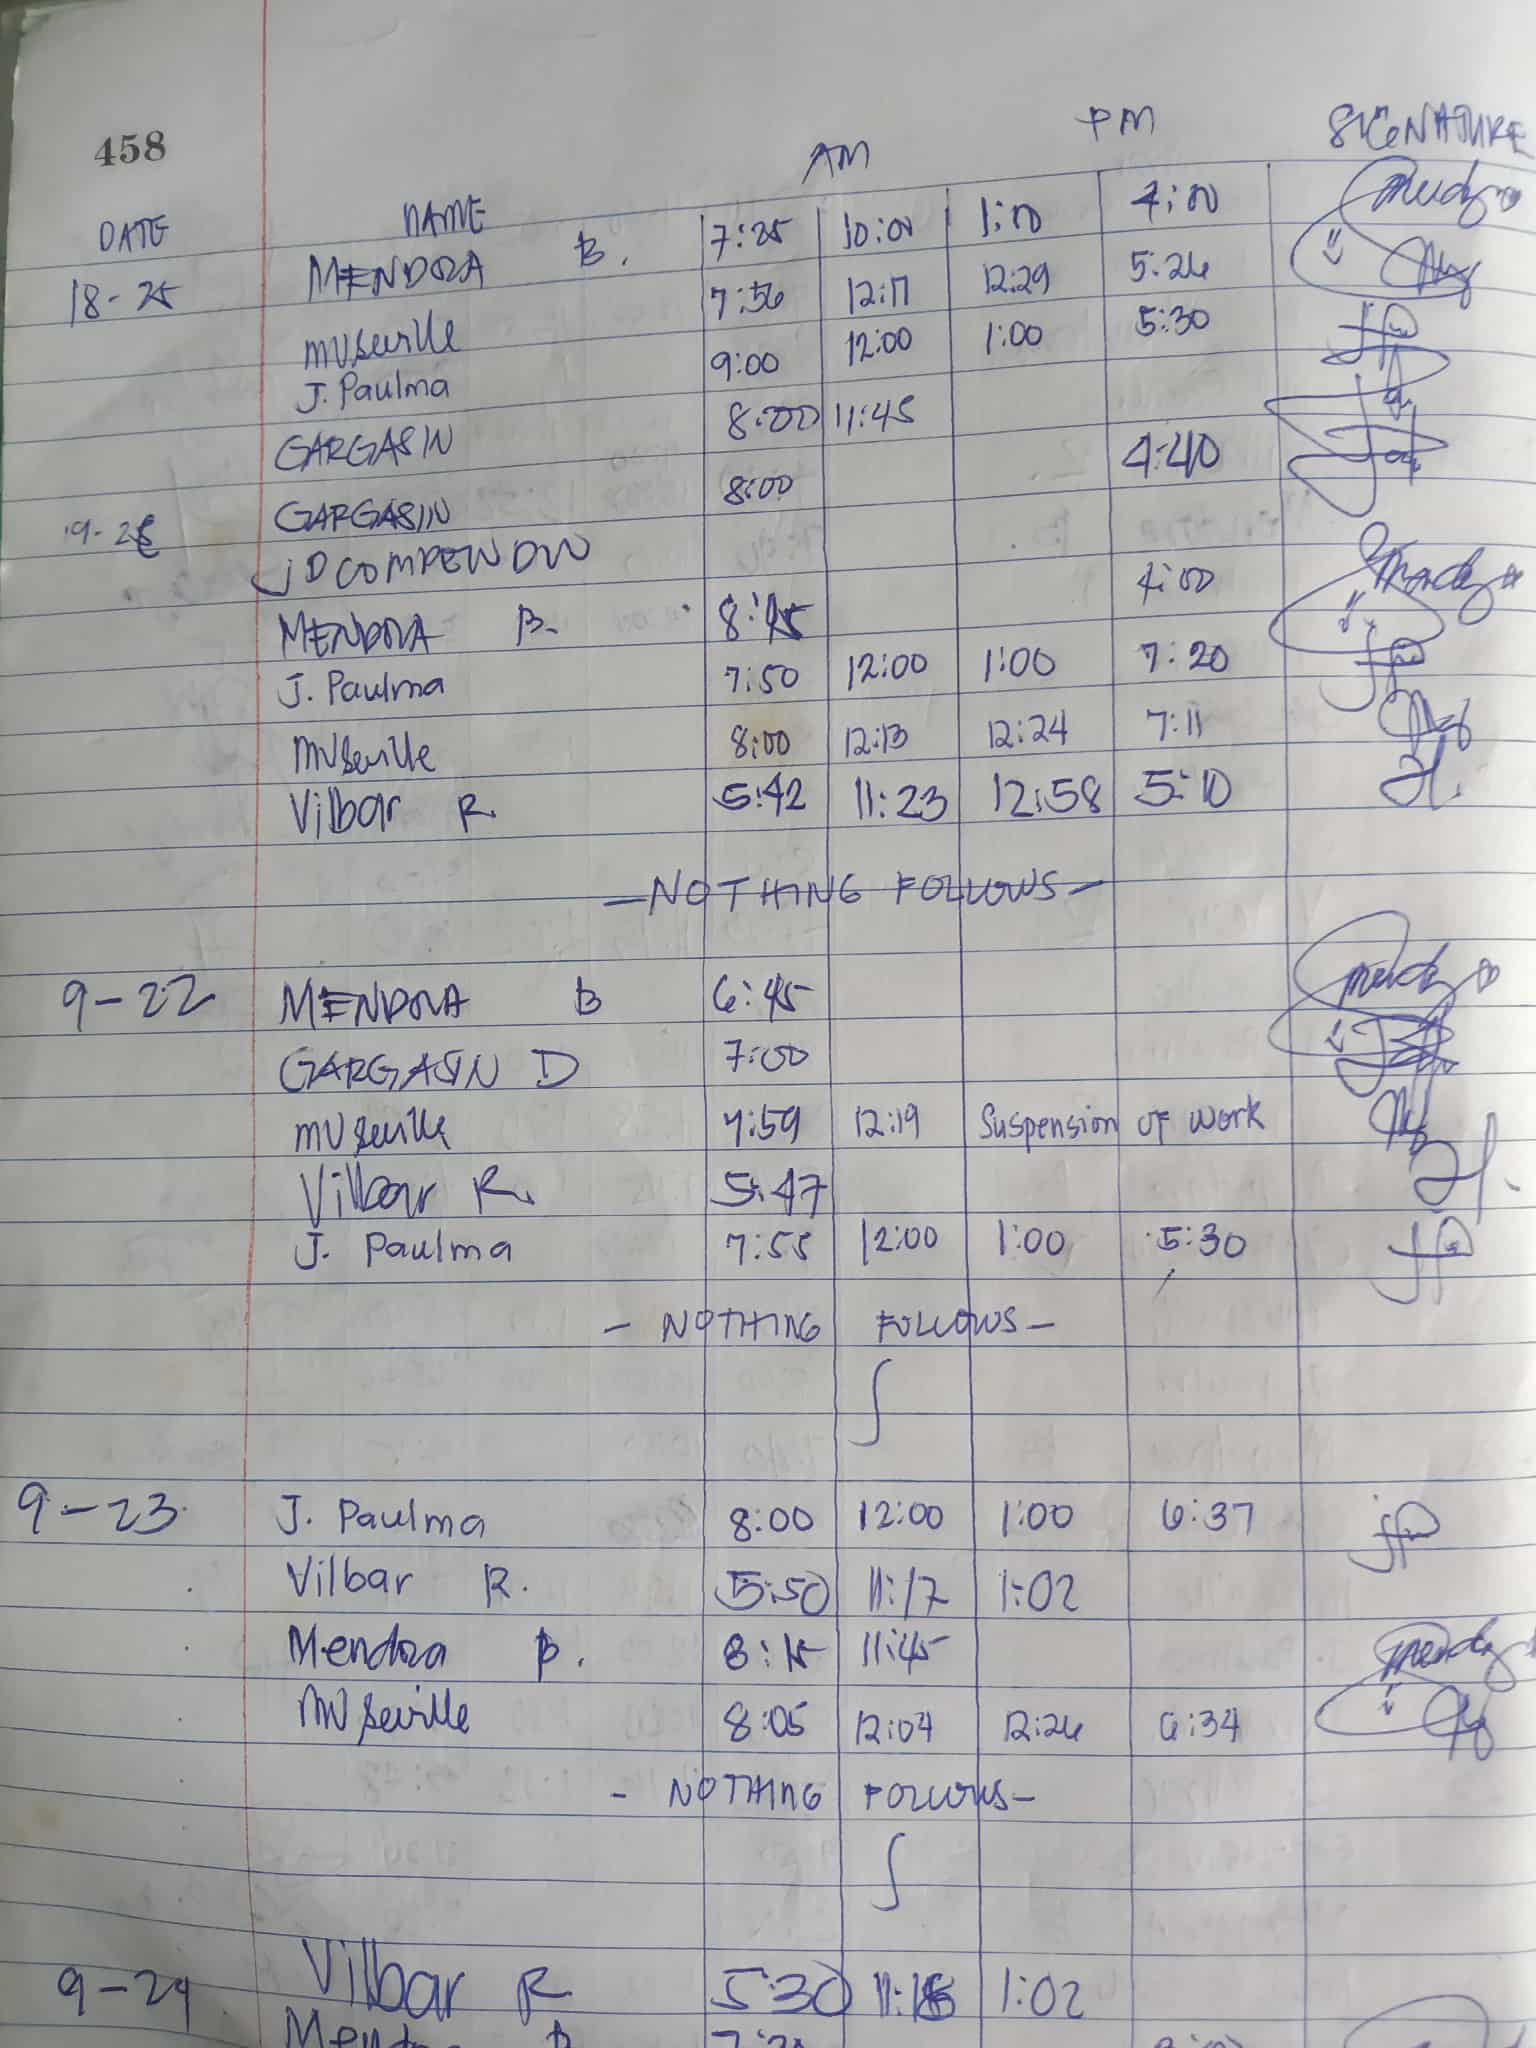 458
AM PM SIGNATURE
DATE NAME
18-25 MENDOZA B. 7:25 10:00 1:00 4:00
MVSeville 7:56 12:17 12:29 5:26
J. Paulma 9:00 12:00 1:00 5:30
GARGASIN 8:00 11:45
GARGASIN 8:00 4:40
JD COMPENDIO
MENDOZA B. 8:45 4:00
J. Paulma 7:50 12:00 1:00 7:20
MVSeville 8:00 12:13 12:24 7:11
Vilbar R. 5:42 11:23 12:58 5:10
-NOTHING FOLLOWS-
9-22 MENDOZA B 6:45
GARGASIN D 7:00
MVSeville 7:59 12:19 Suspension of work
Vilbar R. 5:47
J. Paulma 7:55 12:00 1:00 5:30
- NOTHING FOLLOWS -
9-23 J. Paulma 8:00 12:00 1:00 6:37
Vilbar R. 5:50 11:17 1:02
Mendoza B. 8:15 11:45
MVSeville 8:05 12:04 12:26 6:34
- NOTHING FOLLOWS -
9-24 Vilbar R 5:30 1:02